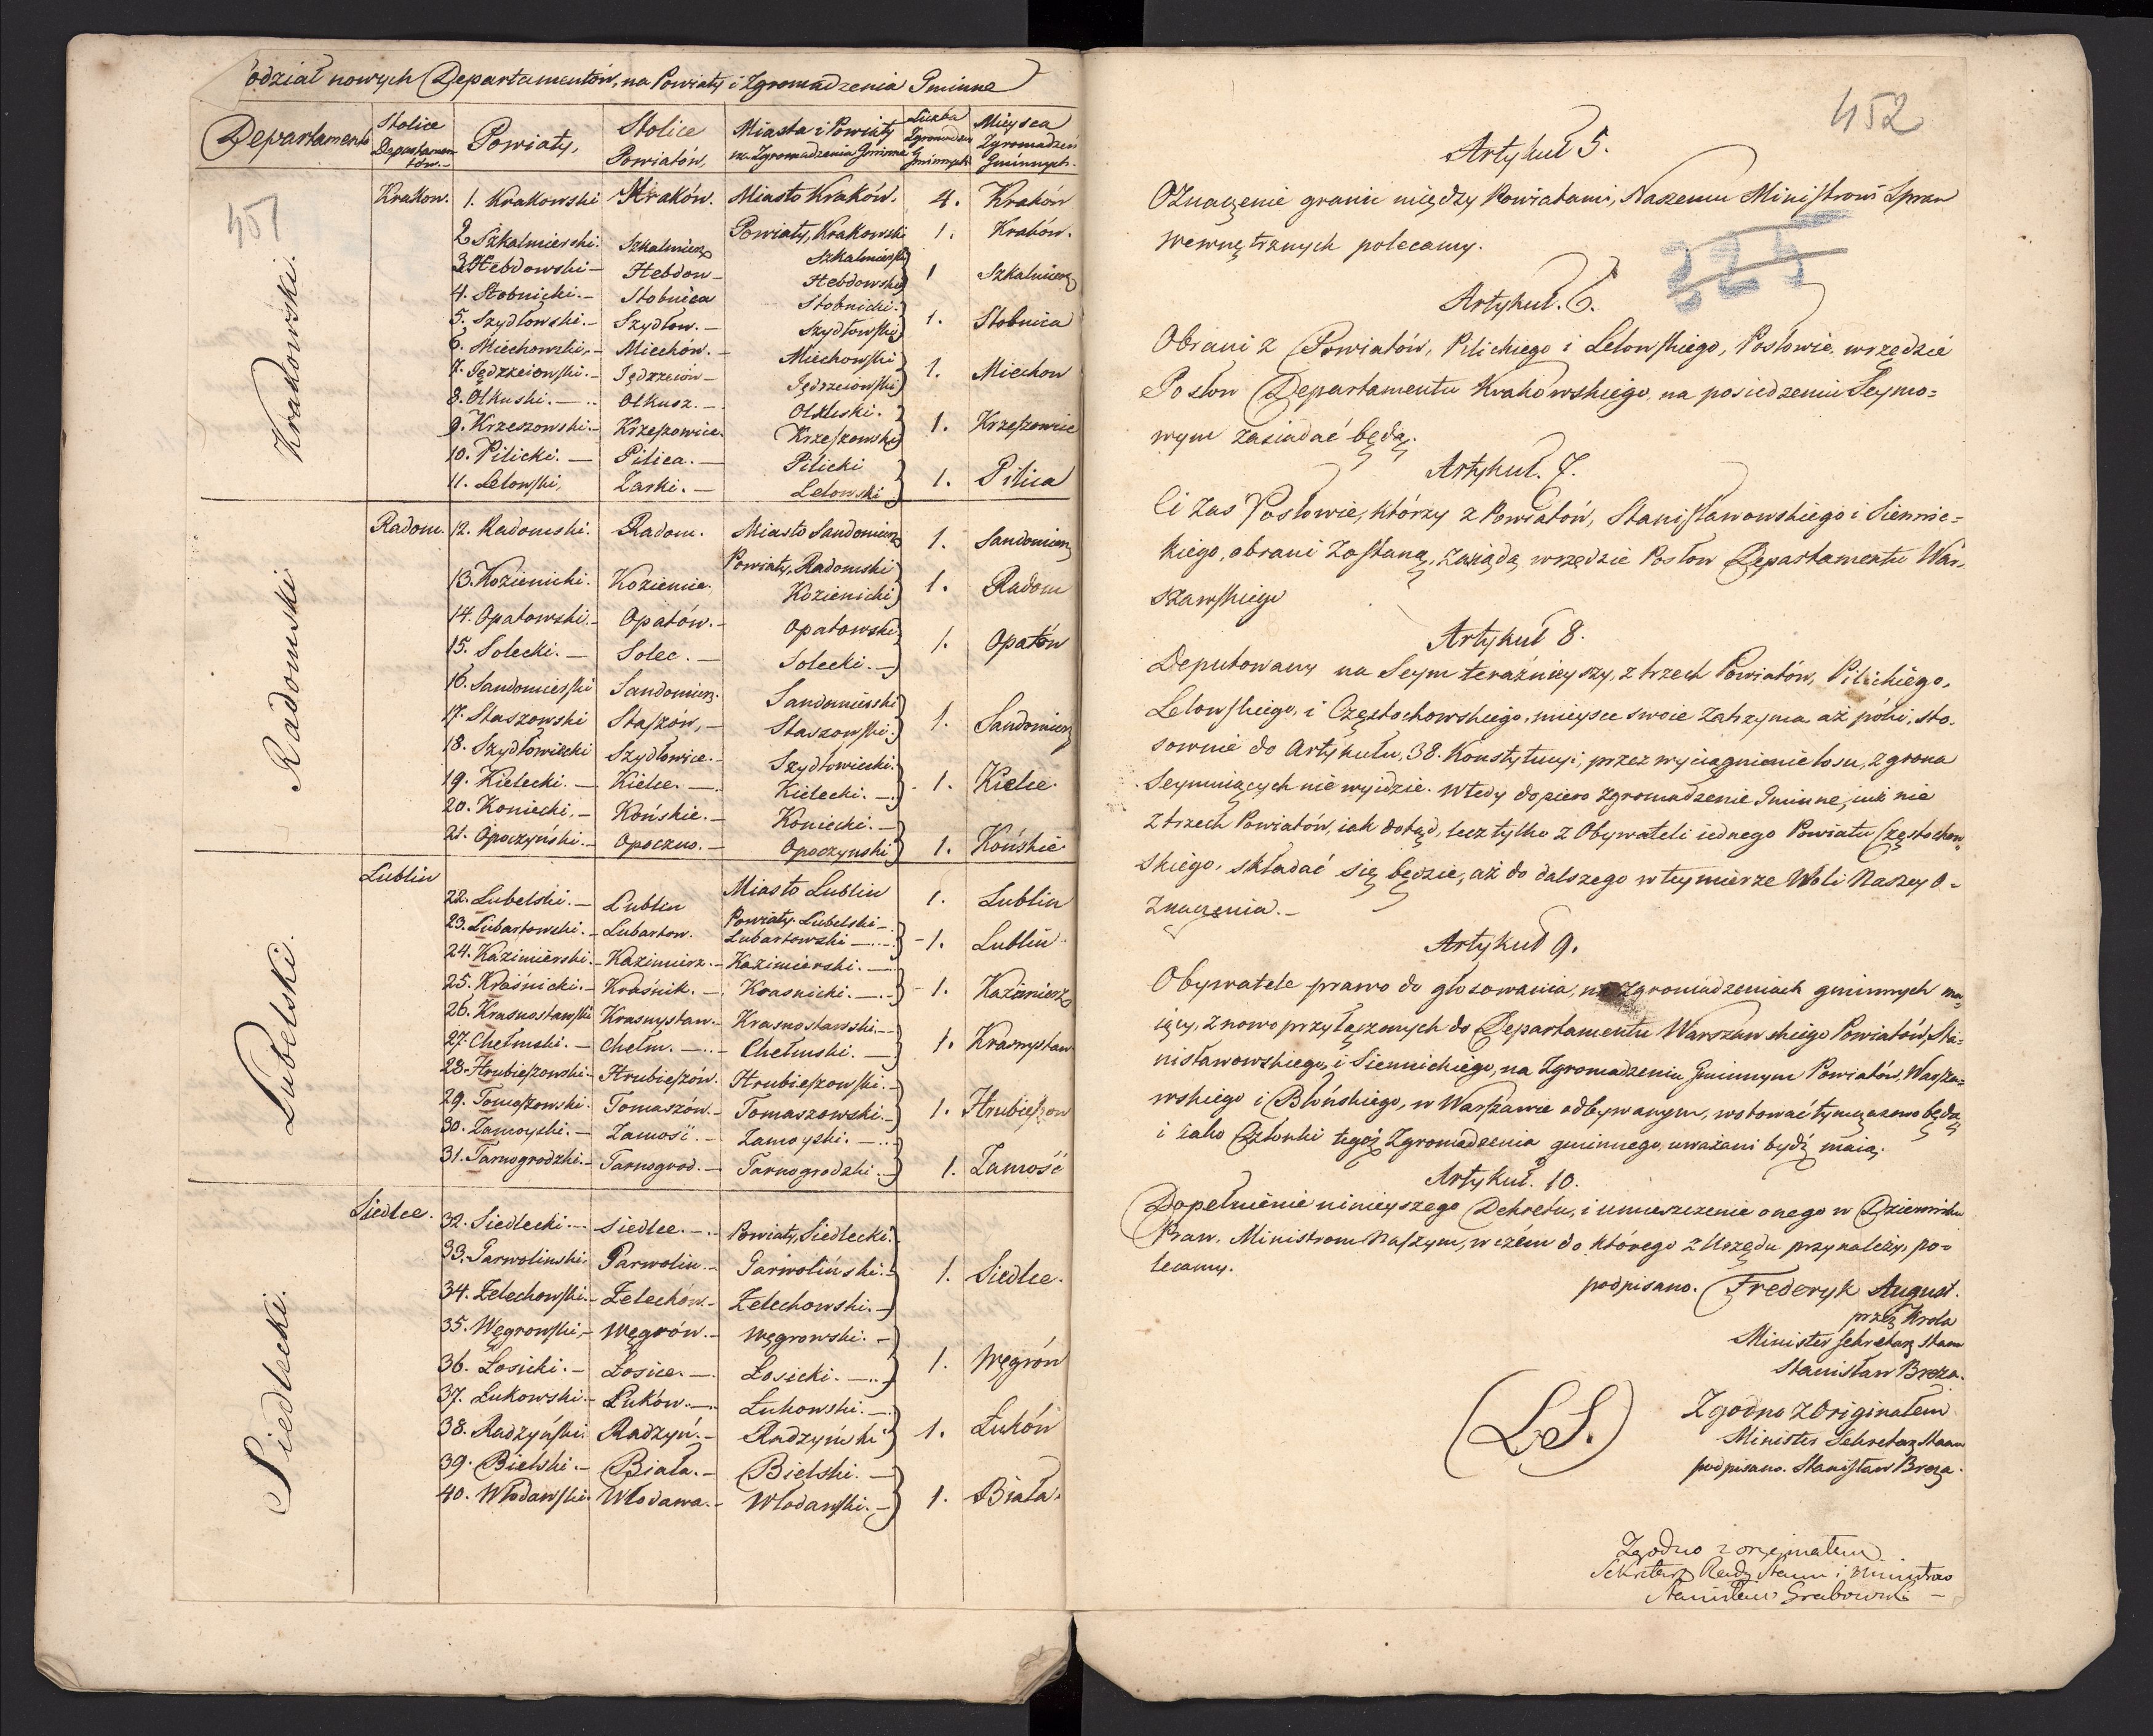 odział nowych Departamentów, na Powiaty i Zgromadzenia Gminne
Departamenta
Stolice Departamentów.
Powiaty,
Stolice Powiatów,
Miasta i Powiaty na Zgromadzenia Gminne
Liczba Zgromadzeń Gminnych
Mieysca Zgromadzeń Gminnych.
451
Krakowski.
Krakow. 1. Krakowski Kraków. Miasto Kraków. 4. Kraków
Powiaty, Krakowski 1. Kraków.
2. Szkalmierski. Szkalmierz Szkalmierski
3. Hebdowski Hebdow Hebdowski 1 Szkalmierz
4. Stobnicki. Stobnica Stobnicki.
5. Szydłowski. Szydłow. Szydłowski 1. Stobnica
6. Miechowski. Miechów. Miechowski
7. Jędrzeiowski. Jędrzeiów Jędrzeiowski 1. Miechow
8. Olkuski. Olkusz. Olkuski.
9. Krzeszowski. Krzeszowice. Krzeszowski 1. Krzeszowice
10. Pilicki. Pilica. Pilicki
11. Lelowski, Zarki. Lelowski 1. Pilica
Radomski
Radom. 12. Radomski. Radom. Miasto Sandomierz 1. Sandomierz
Powiaty, Radomski
13. Kozienicki. Kozienice. Kozienicki 1. Radom
14. Opatowski. Opatów. Opatowski
15. Solecki. Solec. Solecki. 1. Opatów
16. Sandomierski Sandomierz. Sandomierski
17. Staszowski Staszów, Staszowski. 1. Sandomierz
18. Szydłowiecki Szydłowiec. Szydłowiecki.
19. Kielecki. Kielce. Kielecki. 1. Kielce.
20. Koniecki. Końskie. Koniecki.
21. Opoczyński. Opoczno. Opoczynski 1. Końskie
Lubelski.
Lublin
22. Lubelski. Lublin Miasto Lublin 1. Lublin
Powiaty. Lubelski
23. Lubartowski. Lubartow. Lubartowski 1. Lublin
24. Kazimierski. Kazimierz. Kazimierski.
25. Kraśnicki. Kraśnik. Krasnicki. 1. Kazimierz
26. Krasnostawski Krasnystaw. Krasnostawski.
27. Chełmski. Chełm. Chełmski. 1. Krasnystaw
28. Hrubieszowski. Hrubieszów. Hrubieszowski.
29. Tomaszowski. Tomaszów. Tomaszowski. 1. Hrubieszow
30. Zamoyski. Zamość. Zamoyski.
31. Tarnogrodzki. Tarnogrod. Tarnogrodzki. 1. Zamość
Siedlecki.
Siedlce. 32. Siedlecki. Siedlce. Powiaty, Siedlecki.
33. Garwolinski. Garwolin. Garwoliński. 1. Siedlce.
34. Żelechowski. Żelechów. Żelechowski.
35. Węgrowski, Węgrów. Węgrowski.
36. Łosicki. Łosice. Łosicki. 1. Węgrów
37. Łukowski. Łuków. Łukowski.
38. Radzyński Radzyń. Radzyński 1. Łuków
39. Bielski. Biała. Bielski.
40. Włodawski. Włodawa. Włodawski. 1. Biała.
452
Artykuł 5.
Oznaczenie granic między Powiatami, Naszemu Ministrowi Spraw
wewnętrznych polecamy.
Artykuł. 6.
Obrani z Powiatów, Pilickiego i Lelowskiego, Posłowie, wrzędzie
Posłow Departamentu Krakowskiego, na posiedzeniu Seymo=
wym zasiadać będą.
Artykuł. 7.
Ci zaś Posłowie, którzy z Powiatów, Stanisławowskiego i Siennic=
kiego, obrani zostaną, zasiądą wrzędzie Posłow Departamentu War=
szawskiego
Artykuł 8.
Deputowany na Seym teraźnieyszy, z trzech Powiatów, Pilickiego,
Lelowskiego, i Częstochowskiego, mieysce swoie zatrzyma aż póki, sto=
sownie do Artykułu, 38. Konstytucyi, przez wyciągnienie losu, z grona
Seymuiących nie wyidzie. Wtedy dopiero zgromadzenie Gminne, iuż nie
z trzech Powiatów, iak dotąd, lecz tylko z Obywateli iednego Powiatu Częstochow=
skiego, składać się będzie, aż do dalszego w tey mierze Woli Naszey o=
znaczenia.
Artykuł 9.
Obywatele prawo do głosowania, na zgromadzeniach gminnych ma=
iący, z nowo przyłączonych do Departamentu Warszawskiego Powiatów, Sta=
nisławowskiego, i Siennickiego, na Zgromadzeniu Gminnym Powiatów, Warsza=
wskiego i Błońskiego, w Warszawie odbywanym, wotować tymczasowo będą
i iako Członki tegoż Zgromadzenia gminnego, uważani bydź maią.
Artykuł. 10.
Dopełnienie ninieyszego Dekretu, i umieszczenie onego w Dzienniku
Praw, Ministrom Naszym, w czém do którego z Urzędu przynależy, po=
lecamy.
podpisano. Frederyk August.
przez Krola
Minister Sekretarz Stanu
Stanisław Breza.
(L.S.)
Zgodno z Originałem
Minister Sekretarz Stanu
podpisano. Stanisław Breza.
Zgodno z oryginałem
Sekretarz Rady Stanu i Ministrow
Stanisław Grabowski